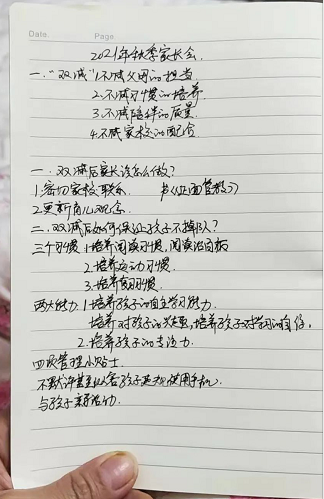 Date.
Page.
2021年秋季家长会.
一."双减"1.不减父母的担当.
2.不减习惯的培养
3.不减陪伴的质量.
4.不减家校的配合.
一.双减后家长该怎么做?
1.密切家校联系. 书《正面管教》
2.更新育儿观念.
二.双减后如何保证孩子不掉队?
三个习惯 1.培养阅读习惯,阅读
2.培养运动习惯.
3.培养 习惯.
两大能力.1.培养孩子的自主学习能力.
培养对孩子的 ,培养孩子对学习的自信.
2.培养孩子的专注力.
四. 管理小贴士.
不默许甚至 孩子 使用手机.
与孩子亲 .